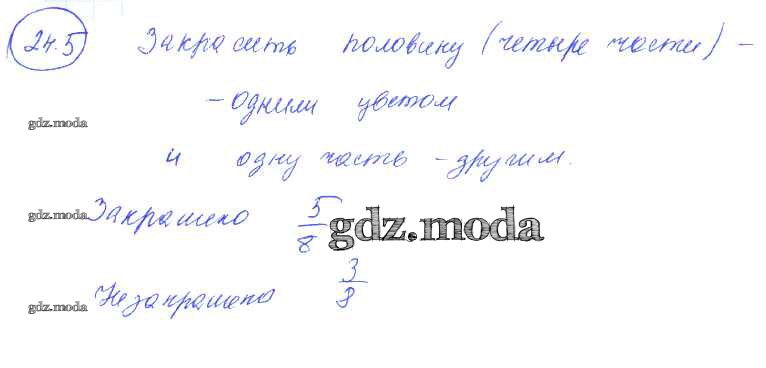 24.5 Закрасить половину (четыре части) -
- одним цветом
gdz.moda
и одну часть - другим.
gdz.moda Закрашено 5/8 gdz.moda
gdz.moda Незакрашено 3/8